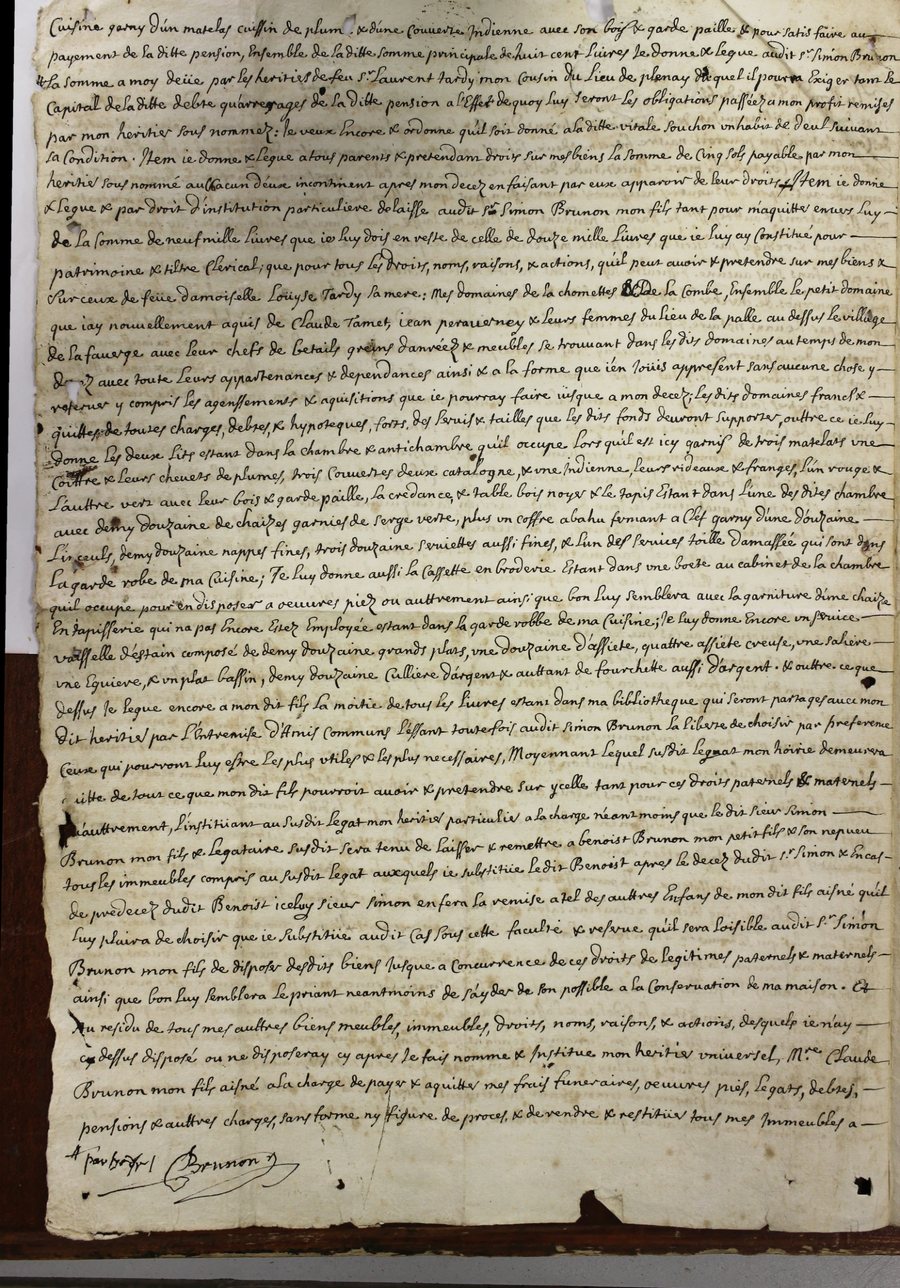 Cuisine garny d'un matelas cuissin de plum. & d'une Couverte Indienne avec son bois & garde paille & pour satisfaire au
payement de la ditte pension, Ensemble de la ditte somme principale de huit cent Livres Ie donne & Legue audit sr. Simon Brunon
la somme a moy deüe par les heritiers de feu sr. Laurent tardy mon Cousin du Lieu de plenay duquel il pourra Exiger tant le
Capital de la ditte debte qu'arrerages de la ditte pension a l'Effet de quoy luy seront les obligations passéez a mon profit remises
par mon heritier sous nommez: Ie veux Encore & ordonne qu'il soit donné a la ditte vitale souchon un habit de deul suivant
sa Condition. Item ie donne & Legue a tous parents & pretendant droits sur mes biens la somme de Cinq sols payable par mon
heritier sous nommé au Chacun d'eux incontinent apres mon decez en faisant par eux apparoir de leur droits Item ie donne
& Legue & par droit d'institution particuliere delaisse audit sr. Simon Brunon mon fils tant pour m'aquitter envers Luy
de la somme de neuf mille Livres que ie luy dois en reste de celle de douze mille Livres que ie luy ay Constitué pour
patrimoine & tiltre Clerical; que pour tous les droits, noms, raisons, & actions, qu'il peut avoir & pretendre sur mes biens &
sur ceux de feüe damoiselle Loüyse Tardy sa mere: Mes domaines de la chomettes & de la Combe, Ensemble le petit domaine
que iay nouvellement aquis de Claude Tamet, iean peraverney & leurs femmes du lieu de la palle au dessus le village
de la faverge avec leur chefs de betails grains danréez & meubles se trouvant dans les dits domaines au temps de mon
decez avec toute leurs appartenances & dependances ainsi & a la forme que i'en Joüis appresent sans aucune chose y
reserver y compris les agenssements & aquisitions que ie pourray faire iusque a mon decez; les dits domaines francs &
quittes de toutes charges, debtes, & hypoteques, fors, des servis & tailles que les dits fonds devront supporter, outtre ce ie luy
donne les deux Lits estant dans la chambre & antichambre qu'il occupe Lors qu'il est icy garnis de trois matelats une
Coittre & leurs chevets de plumes, trois Couvertes deux catalogne, & une Indienne, leurs rideaux & franges, L'un rouge &
L'auttre vert avec leur bois & garde paille, la credance, & table bois noyer & le tapis Estant dans l'une des dites chambre
avec demy douzaine de chaizes garnies de serge verte, plus un coffre a bahu fermant a Clef garny d'une douzaine
Linceuls, demy douzaine nappes fines, trois douzaine serviettes aussi fines, & l'un des services toille damassée qui sont dans
la garde robe de ma Cuisine; Ie luy donne aussi la Cassette en broderie Estant dans une boete au cabinet de la chambre
qu'il occupe pour en disposer a oeuvres piez ou auttrement ainsi que bon luy semblera avec la garniture d'une chaize
En tapisserie qui na pas Encore Estez Employée estant dans la garde robbe de ma Cuisine; Ie luy donne Encore un service
vaisselle d'estain composé de demy douzaine grands plats, une douzaine d'assiete, quattre assiete creuse, une saliere
une Equiere, & un plat bassin, demy douzaine Culliere d'argent & auttant de fourchette aussi d'argent. & outtre ce que
dessus Ie legue encore a mon dit fils la moitie de tous les Livres estant dans ma bibliotheque qui seront partages avec mon
dit heritier par l'Entremise d'Amis communs l'essant toutefois audit Simon Brunon la liberte de choisir par preference
Ceux qui pourront luy estre les plus utiles & les plus necessaires, Moyennant Lequel susdit Legat mon hoirie demeurera
uitte de tout ce que mon dit fils pourroit avoir & pretendre sur ycelle tant pour ces droits paternels & maternels
qu'auttrement, l'instituant au susdit Legat mon heritier particulier a la charge néantmoins que le dit sieur Simon
Brunon mon fils & Legataire susdit sera tenu de laisser & remettre a benoist Brunon mon petit fils & son nepveu
tous les immeubles compris au susdit legat auxquels ie substitüe ledit Benoist apres le decez dudit sr. Simon & En cas
de predecez dudit Benoist iceluy sieur simon en fera la remise a tel des auttres Enfans de mon dit fils aisné qu'il
Luy plaira de choisir que ie substitüe audit Cas sous cette faculté & reserve qu'il sera loisible audit sr. Simon
Brunon mon fils de disposer desdits biens Jusque a Concurrence de ces droits de legitimes paternels & maternels
ainsi que bon luy semblera le priant neantmoins de s'ayder de son possible a la Conservation de ma maison. Et
Au residu de tous mes auttres biens meubles, immeubles, droits, noms, raisons, & actions, desquels ie n'ay
cy dessus disposé ou ne disposeray cy apres Ie fais nomme & Institue mon heritier universel, Mre. Claude
Brunon mon fils aisné a la charge de payer & aquitter mes frais funeraires, oeuvres pies, legats, debtes,
pensions & auttres charges, sans forme ny figure de proces, & de rendre & restitüer tous mes Immeubles a
Brunon